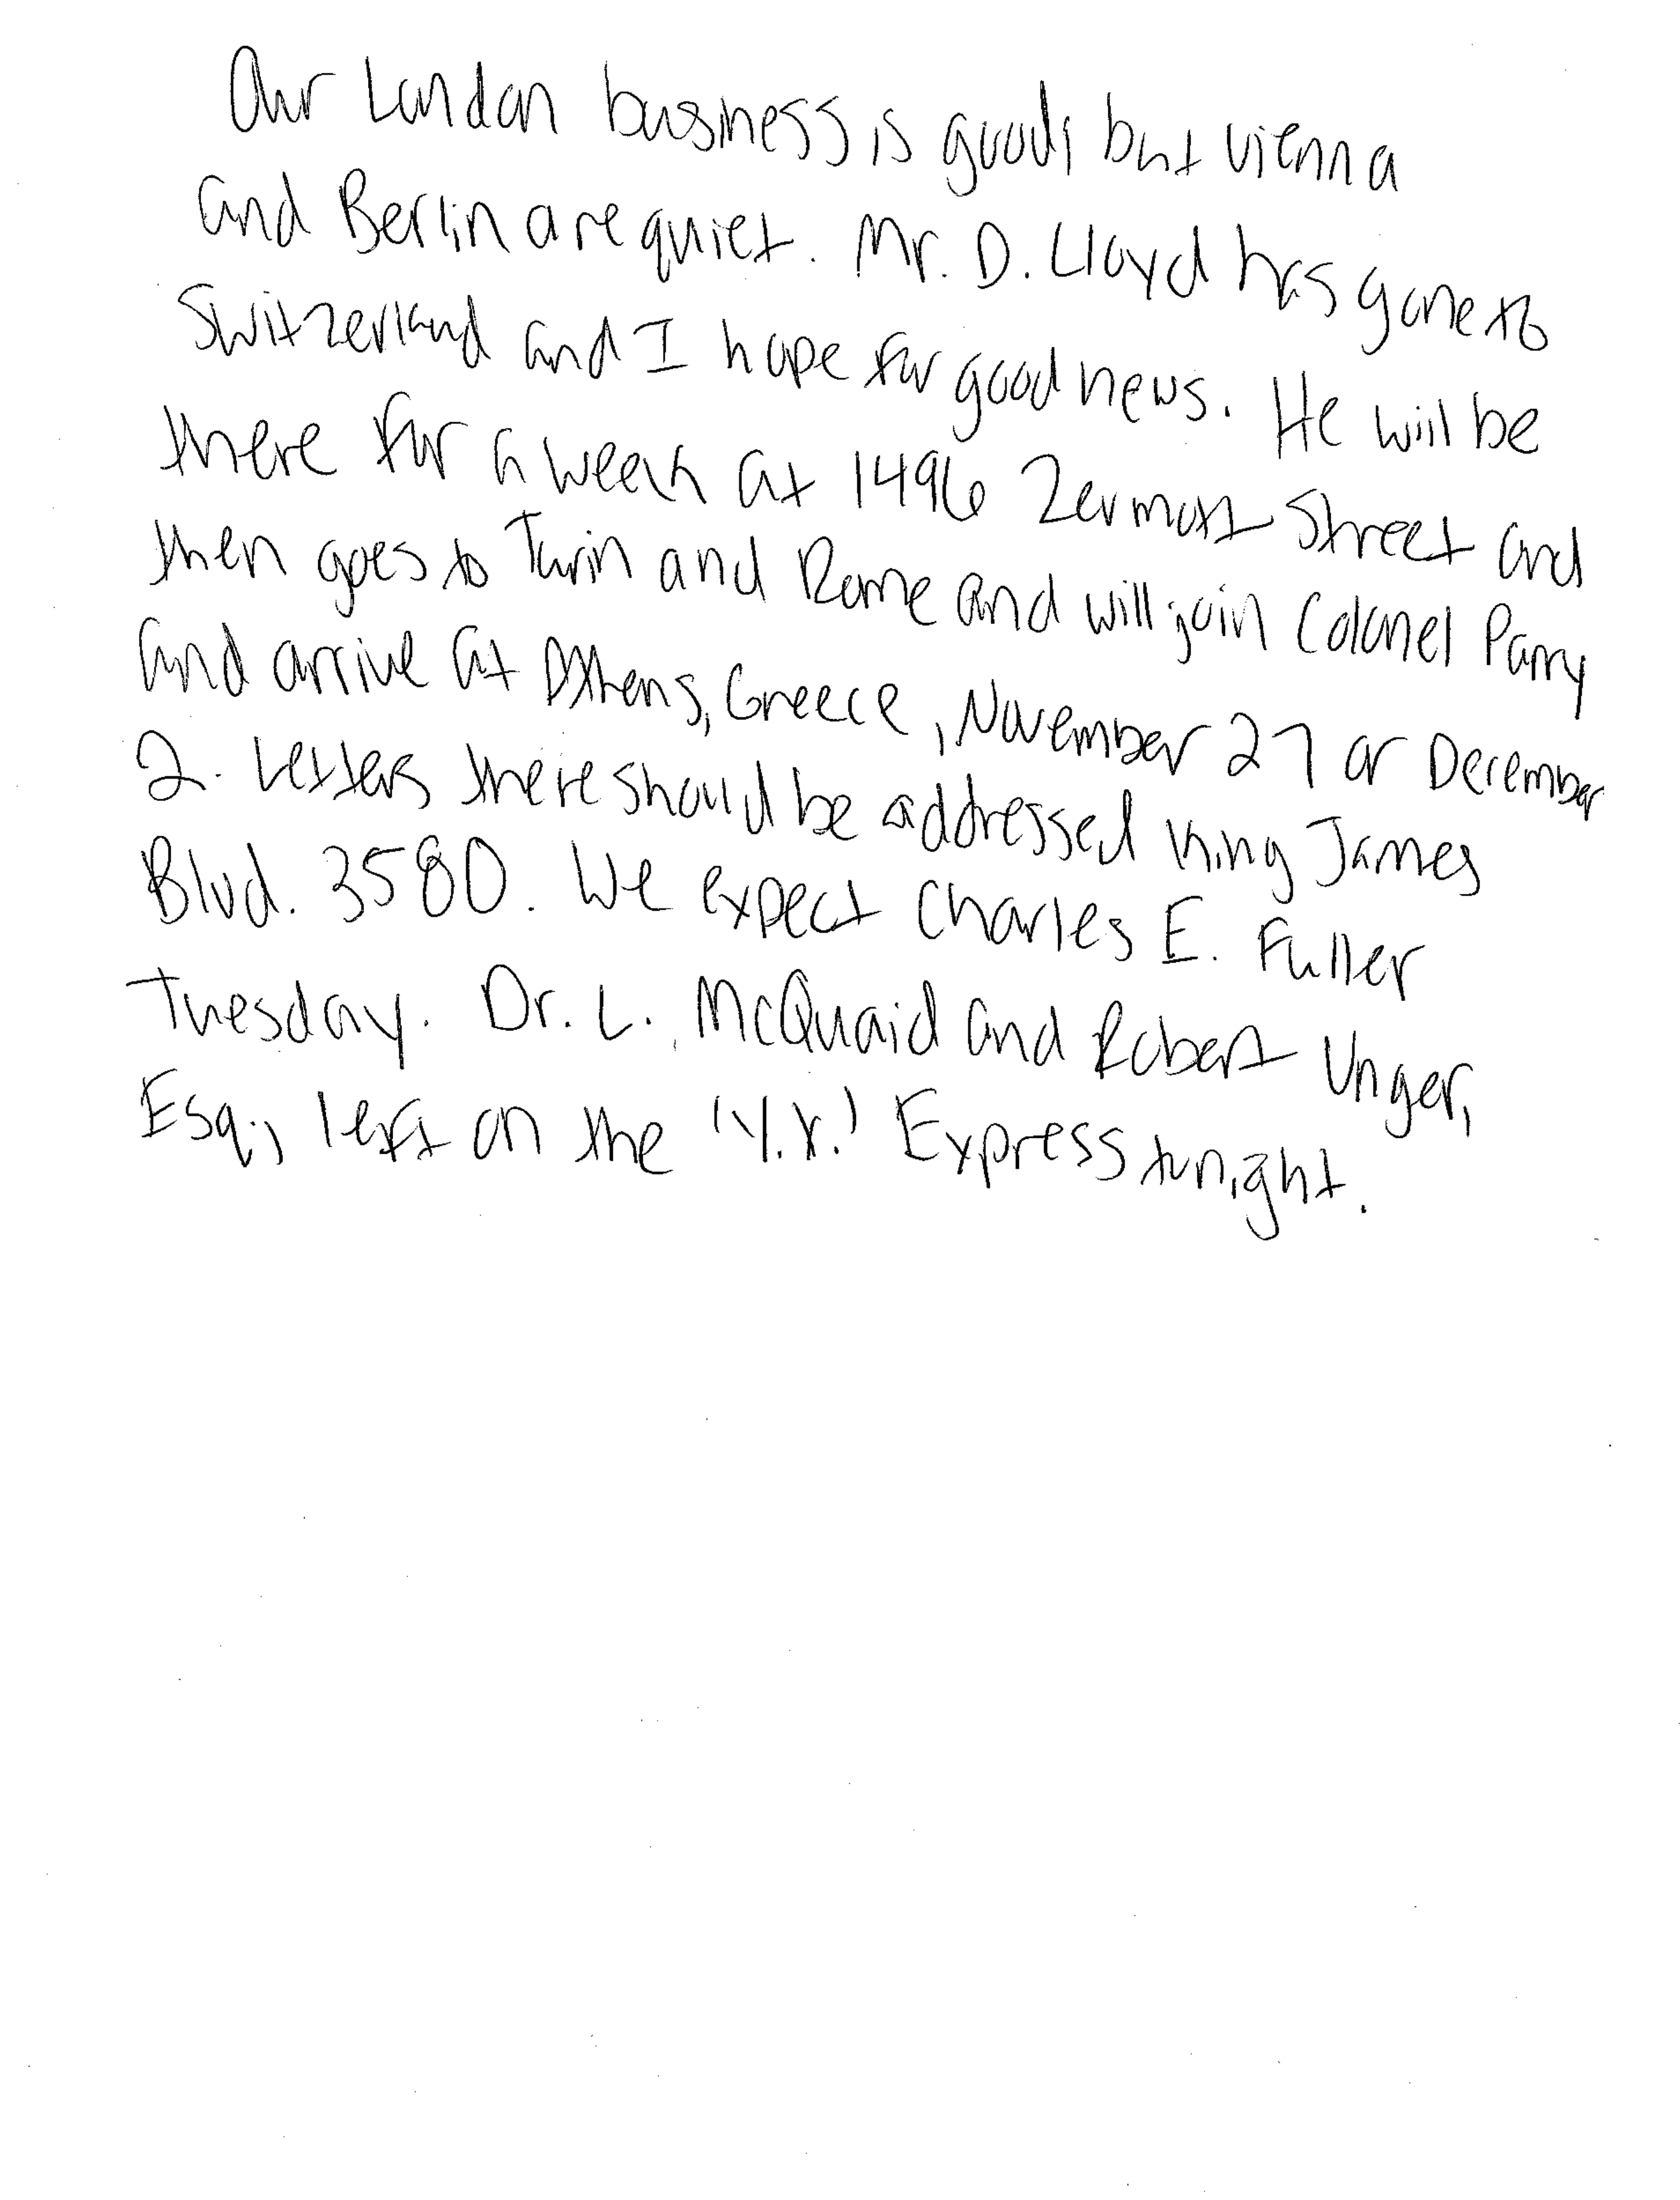 Our London business is good, but Vienna
and Berlin are quiet. Mr. D. Lloyd has gone to
Switzerland and I hope for good news. He will be
there for a week at 1496 Zermott Street and
then goes to Turin and Rome and will join Colonel Parry
and arrive at Athens, Greece, November 27 or December
2. Letters there should be addressed King James
Blvd. 3580. We expect Charles E. Fuller
Tuesday. Dr. L. McQuaid and Robert Unger,
Esq., left on the 'Y.X.' Express tonight.